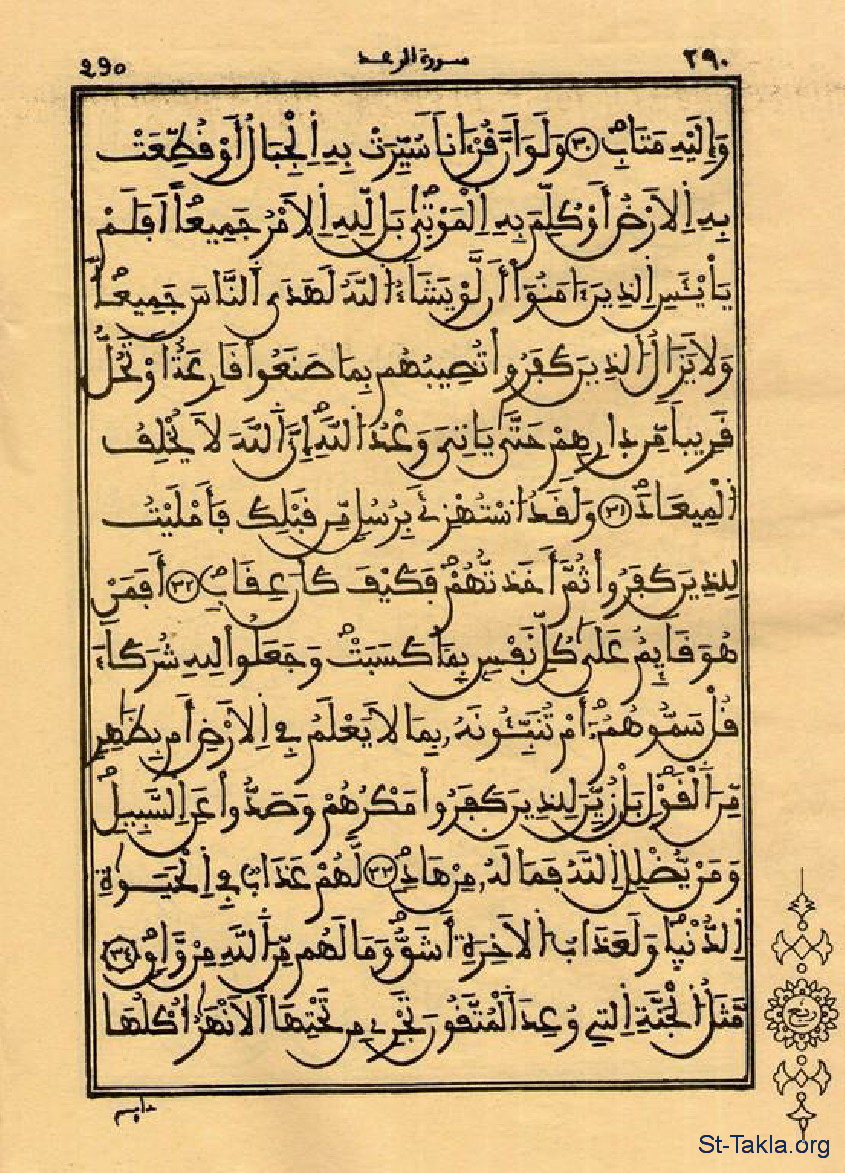 290 سورة الرعد ٢٩٠
وَإِلَيْهِ مَتَابِ ٣٠ وَلَوَ اَنَّ قُرْءَاناً سُيِّرَتْ بِهِ اِ۬لْجِبَالُ أَوْ قُطِّعَتْ
بِهِ اِ۬لَارْضُ أَوْ كُلِّمَ بِهِ اِ۬لْمَوْتٜىۖ بَل لِّلهِ اِ۬لَامْرُ جَمِيعاًۖ اَفَلَمْ
يَاْيْـَٔسِ اِ۬لذِينَ ءَامَنُوٓاْ أَن لَّوْ يَشَآءُ اُ۬للَّهُ لَهَدَى اَ۬لنَّاسَ جَمِيعاًۖ
وَلَا يَزَالُ اُ۬لذِينَ كَفَرُواْ تُصِيبُهُم بِمَا صَنَعُواْ قَارِعَةٌ اَوْ تَحُلُّ
قَرِيباً مِّن دِارِهِمْ حَتَّىٰ يَاتِيَ وَعْدُ اُ۬للَّهِۖ إِنَّ اَ۬للَّهَ لَا يُخْلِفُ
اُ۬لْمِيعَادَۖ ٣١ وَلَقَدُ اُ۟سْتُهْزِئَ بِرُسُلٍ مِّن قَبْلِكَ فَأَمْلَيْتُ
لِلذِينَ كَفَرُواْ ثُمَّ أَخَذتُّهُمْۖ فَكَيْفَ كَانَ عِقَابِۖ ٣٢ أَفَمَنْ
هُوَ قَآئِمٌ عَلَىٰ كُلِّ نَفْسٍۢ بِمَا كَسَبَتْۖ وَجَعَلُواْ لِلهِ شُرَكَآءَ
قُلْ سَمُّوهُمُۥٓۖ أَمْ تُنَبِّـُٔونَهُۥ بِمَا لَا يَعْلَمُ فِے اِ۬لَارْضِ أَم بِظَٰهِرٍ
مِّنَ اَ۬لْقَوْلِۖ بَلْ زُيِّنَ لِلذِينَ كَفَرُواْ مَكْرُهُمْ وَصَدُّواْ عَنِ اِ۬لسَّبِيلِۖ
وَمَنْ يُّضْلِلِ اِ۬للَّهُ فَمَا لَهُۥ مِنْ هَادٍۖ ٣٣ لَّهُمْ عَذَابٌ فِے اِ۬لْحَيَوٰةِ
اِ۬لدُّنْيٜاۖ وَلَعَذَابُ اُ۬لَاخِرَةِ أَشَقُّۖ وَمَا لَهُم مِّنَ اَ۬للَّهِ مِنْ وَّاقٍۖ ٣٤
مَّثَلُ اُ۬لْجَنَّةِ اِ۬لتِے وُعِدَ اَ۬لْمُتَّقُونَ تَجْرِے مِن تَحْتِهَا اَ۬لَانْهَٰرُۖ أُكْلُهَا
دايم
ربع
St-Takla.org